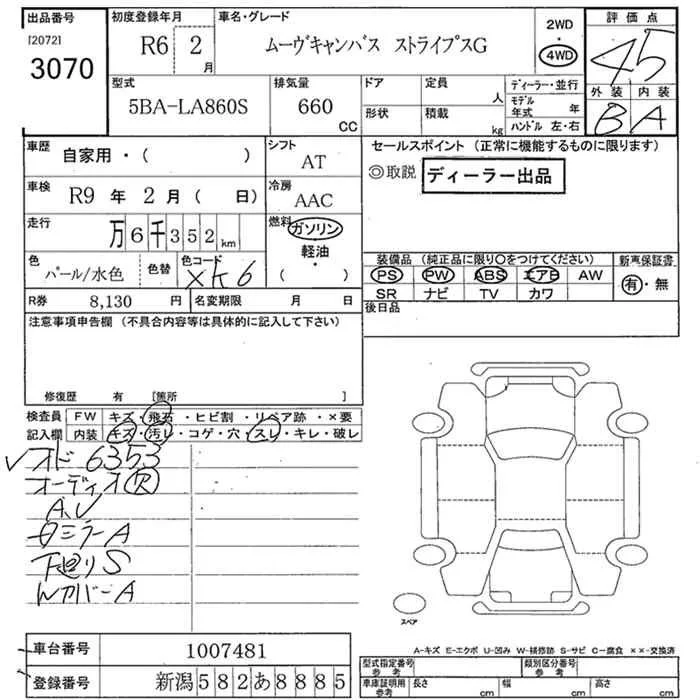 出品番号 初度登録年月 車名・グレード 2WD 評価点
[2072] R6 2月 ムーヴキャンバス ストライプスG ・ 4WD 45
3070
型式 排気量 ドア 定員 人 ディーラー・並行 外装 内装
5BA-LA860S 660 CC 形状 積載 kg モデル年式 年 B A
ハンドル 左・右
車歴 自家用・( ) シフト AT セールスポイント (正常に機能するものに限ります)
◎取説 ディーラー出品
車検 R9 年 2 月 ( 日) 冷房 AAC
走行 万 6 千 3 5 2 km 燃料 ガソリン
軽油・
( )
装備品 (純正品に限り○をつけてください) 新車保証書
色 パール/水色 色替 色コード XK6 PS PW ABS エアB AW 有・無
SR ナビ TV カワ
R券 8,130 円 名変期限 月 日 後日品
注意事項申告欄 (不具合内容等は具体的に記入して下さい)
修復歴 有 [箇所 ]
検査員 FW キズ・飛石・ヒビ割・リペア跡・×要
記入欄 内装 キズ・汚レ・コゲ・穴・スレ・キレ・破レ
✓オド 6353
オーディオ欠
A,U
下廻りS
WカバーA
スペア
車台番号 1007481
登録番号 新潟582あ8885
A-キズ E-エクボ U-凹み W-補修跡 S-サビ C-腐食 ××-交換済
型式指定番号 参考 類別区分番号 参考
車庫証明用 参考 長さ cm 幅 cm 高さ cm